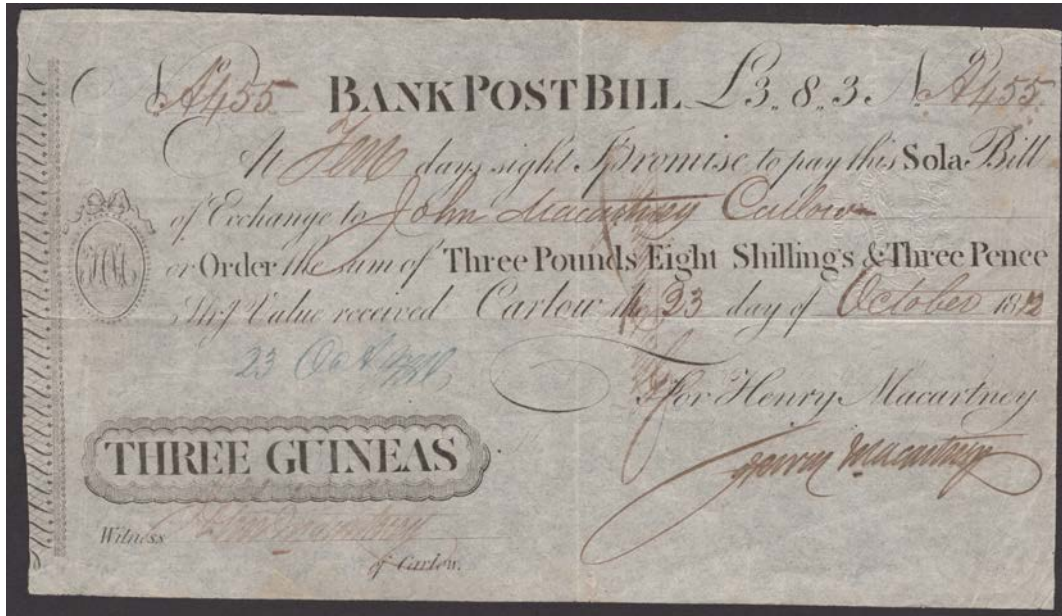 No. A455 BANK POST BILL £3,, 8,, 3. No. A455
At Ten days sight I promise to pay this Sola Bill
of Exchange to John Macartney Carlow
or Order the sum of Three Pounds Eight Shillings & Three Pence
Irish Value received Carlow the 23 day of October 1812
23 Oct
For Henry Macartney
Henry Macartney
THREE GUINEAS
Witness Macartney
of Carlow.